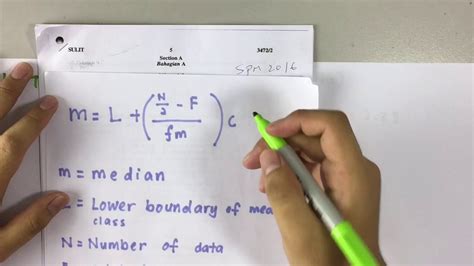 SULIT 5 3472/2
Section A
Bahagian A
Spm 2016
m = L + ( (N/2 - F) / fm ) c
m = median
L = Lower boundary of
class
N = Number of data